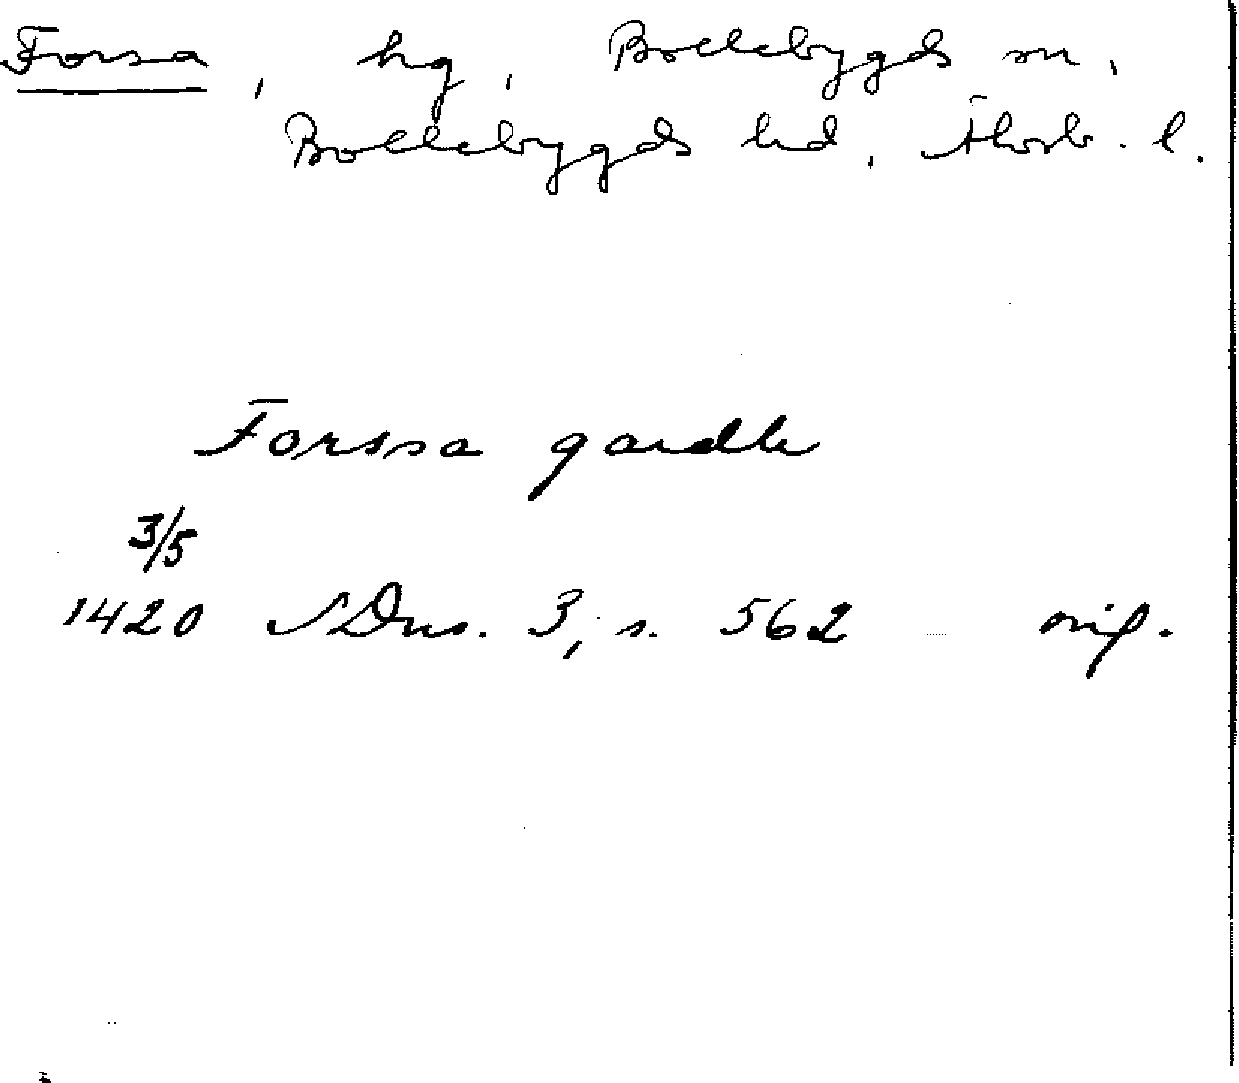 Forsa, hg, Bollebygds sn,
Bollebygds hd, Älvsb. l.
Forssa gardh
3/5
1420 SDns. 3, s. 562 orig.